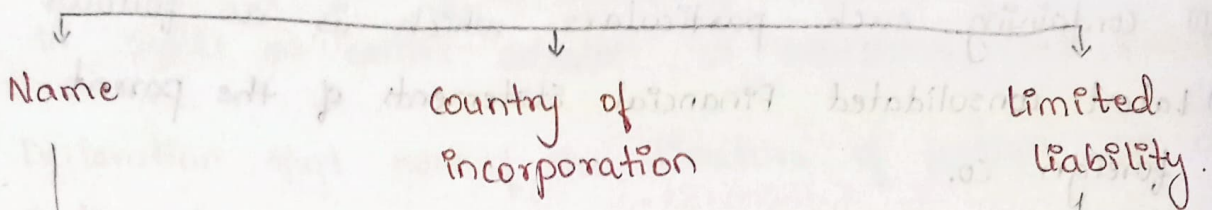 Name
Country of
incorporation
Limited
liability.